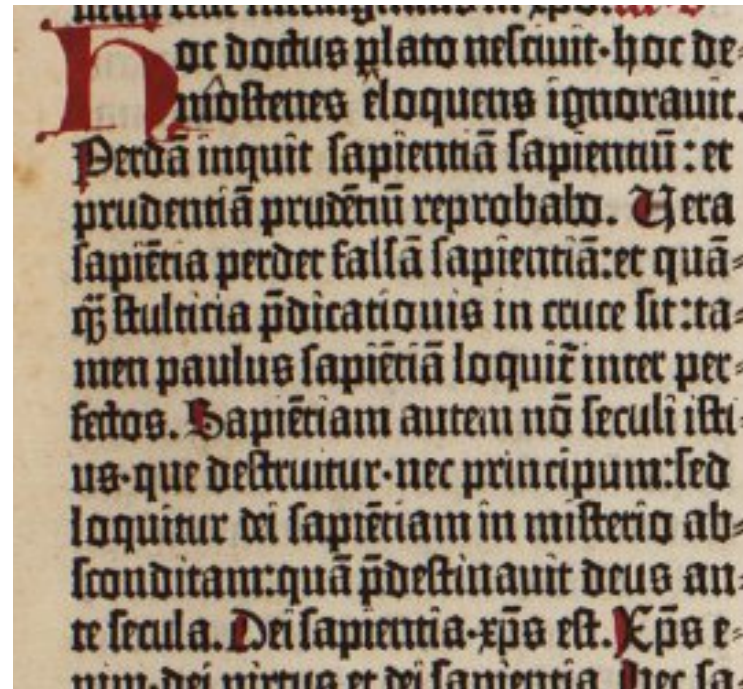 Hoc doctus plato nesciuit·hoc de-
mostenes eloquens ignorauit.
Perdā inquit sapientiā sapientiū: et
prudentiā prudētiū reprobabo. Vera
sapiētia perdet falsā sapientiā: et quā-
q̄ stulticia p̄dicationis in cruce sit: ta-
men paulus sapiētiā loquit̄ inter per-
fectos. Sapiētiam autem nō seculi isti-
us·que destruitur·nec principum: sed
loquitur dei sapiētiam in misterio ab-
sconditam: quā p̄destinauit deus an-
te secula. Dei sapientia·xp̄s est. Xp̄s e-
nim·dei virtus et dei sapientia. Hec sa-